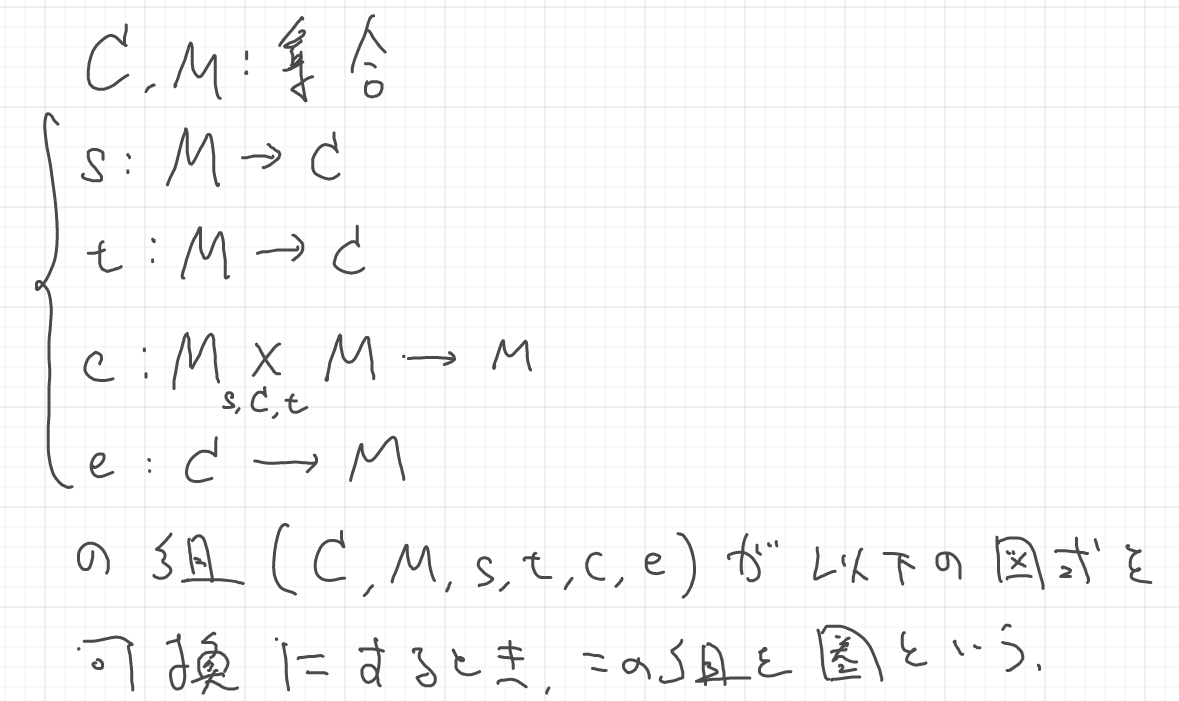 C, M : 集合
s : M → C
t : M → C
c : M × M → M
s, C, t
e : C → M
の組 (C, M, s, t, c, e) が以下の図式を
可換にするとき, この組を圏という.